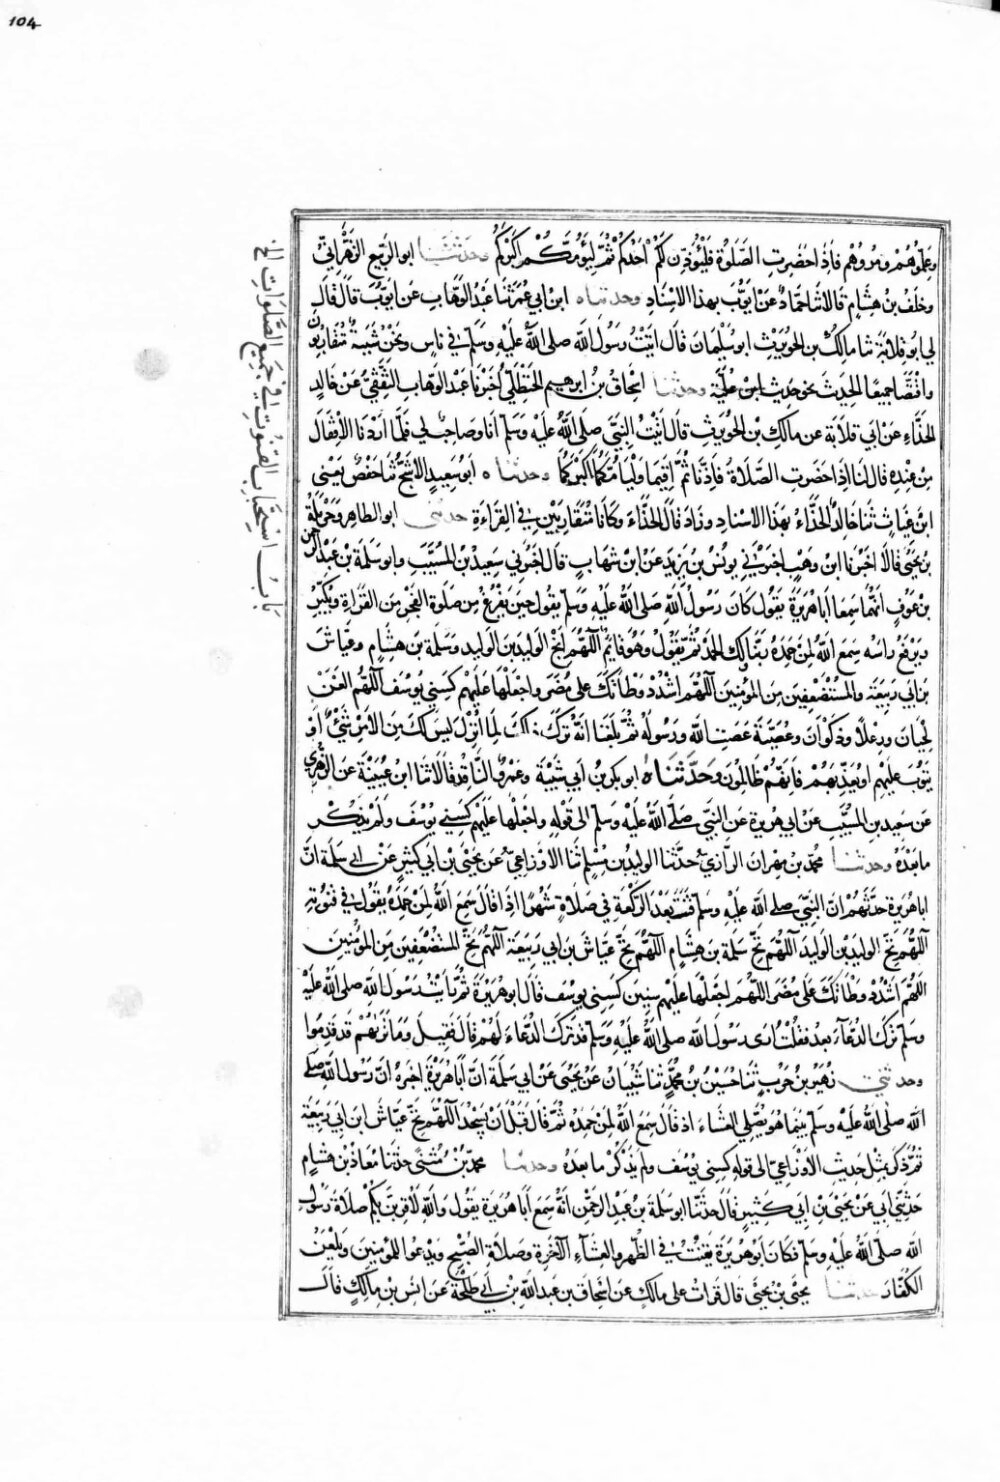 104
وعلموهم ومروهم فاذا حضرت الصلوة فليؤذن لكم احدكم ثم ليؤمكم اكبركم وحدثنا ابو الربيع الزهراني
وخلف بن هشام قالا ثنا حماد عن ايوب بهذا الاسناد وحدثناه ابن ابي عمر ثنا عبد الوهاب عن ايوب قال قال
لي ابو قلابة ثنا مالك بن الحويرث ابو سليمان قال اتيت رسول الله صلى الله عليه وسلم في ناس ونحن شببة متقاربون
واقتصا جميعا الحديث بنحو حديث ابن علية وحدثنا اسحاق بن ابرهيم الحنظلي اخبرنا عبد الوهاب الثقفي عن خالد
الحذاء عن ابي قلابة عن مالك بن الحويرث قال اتيت النبي صلى الله عليه وسلم انا وصاحب لي فلما اردنا الاقفال
من عنده قال لنا اذا حضرت الصلاة فاذنا ثم اقيما وليامكما اكبركما وحدثناه ابو سعيد الاشج ثنا حفص يعني
ابن غياث ثنا خالد الحذاء بهذا الاسناد وزاد قال الحذاء وكانا متقاربين في القراءة حدثني ابو الطاهر وحرملة
بن يحيى قالا اخبرنا ابن وهب اخبرني يونس بن يزيد عن ابن شهاب قال اخبرني سعيد بن المسيب وابو سلمة بن عبد الرحمن
بن عوف انهما سمعا ابا هريرة يقول كان رسول الله صلى الله عليه وسلم يقول حين يفرغ من صلوة الفجر من القراءة ويكبر
ويرفع راسه سمع الله لمن حمده ربنا ولك الحمد ثم يقول وهو قايم اللهم انج الوليد بن الوليد وسلمة بن هشام وعياش
بن ابي ربيعة والمستضعفين من المؤمنين اللهم اشدد وطأتك على مضر واجعلها عليهم كسني يوسف اللهم العن
لحيان ورعلا وذكوان وعصية عصت الله ورسوله ثم بلغنا انه ترك ذلك لما انزل ليس لك من الامر شئ او
يتوب عليهم او يعذبهم فانهم ظالمون وحدثناه ابو بكر بن ابي شيبة وعمرو الناقد قالا ثنا ابن عيينة عن الزهري
عن سعيد بن المسيب عن ابي هريرة عن النبي صلى الله عليه وسلم الى قوله واجعلها عليهم كسني يوسف ولم يذكر
ما بعده وحدثنا محمد بن مهران الرازي حدثنا الوليد بن مسلم ثنا الاوزاعي عن يحيى بن ابي كثير عن ابي سلمة ان
ابا هريرة حدثهم ان النبي صلى الله عليه وسلم قنت بعد الركعة في صلاة شهرا اذا قال سمع الله لمن حمده يقول في قنوته
اللهم نج الوليد بن الوليد اللهم نج سلمة بن هشام اللهم نج عياش بن ابي ربيعة اللهم نج المستضعفين من المؤمنين
اللهم اشدد وطأتك على مضر اللهم اجعلها عليهم سنين كسني يوسف قال ابو هريرة ثم رأيت رسول الله صلى الله عليه
وسلم ترك الدعاء بعد فقلت ارى رسول الله صلى الله عليه وسلم قد ترك الدعاء لهم قال فقيل وما تراهم قد قدموا
وحدثني زهير بن حرب ثنا حسين بن محمد ثنا شيبان عن يحيى عن ابي سلمة ان ابا هريرة اخبره ان رسول الله صلى
الله صلى الله عليه وسلم بينما هو يصلي العشاء اذ قال سمع الله لمن حمده ثم قال قبل ان يسجد اللهم نج عياش ابن ابي ربيعة
ثم ذكر بمثل حديث الاوزاعي الى قوله كسني يوسف ولم يذكر ما بعده وحدثنا محمد بن مثنى حدثنا معاذ بن هشام
حدثني ابي عن يحيى بن ابي كثير قال حدثنا ابو سلمة بن عبد الرحمن انه سمع ابا هريرة يقول والله لاقربن بكم صلاة رسول
الله صلى الله عليه وسلم فكان ابو هريرة يقنت في الظهر والعشاء الآخرة وصلاة الصبح ويدعو للمؤمنين ويلعن
الكفار حدثنا يحيى بن يحيى قال قرات على مالك عن اسحاق بن عبد الله بن ابي طلحة عن انس بن مالك قال
باب استحباب القنوت في جميع الصلوات الخ